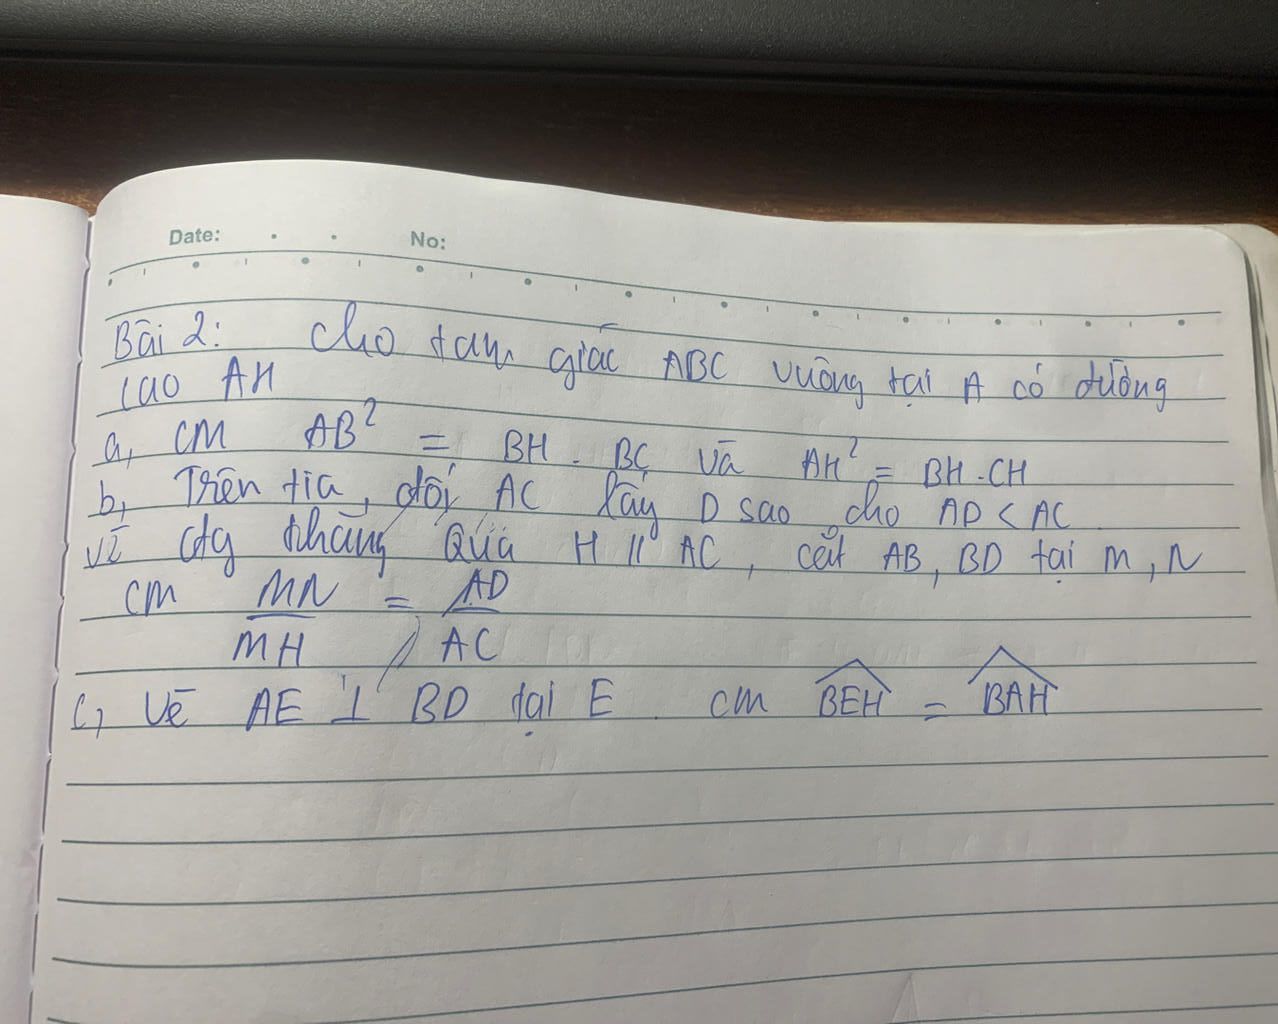 Date: . . No:
Bài 2: Cho tam giác ABC vuông tại A có đường
cao AH
a, CM AB² = BH . BC và AH² = BH . CH
b, Trên tia đối AC lấy D sao cho AD < AC
Vẽ đtg thẳng qua H // AC, cắt AB, BD tại M, N
CM MN/MH = AD/AC
c, Vẽ AE ⊥ BD tại E. cm \widehat{BEH} = \widehat{BAH}